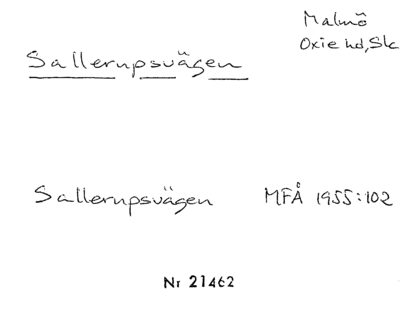 Malmö
Oxie hd, Sk
Sallerupsvägen
Sallerupsvägen MFÅ 1955:102
Nr 21462